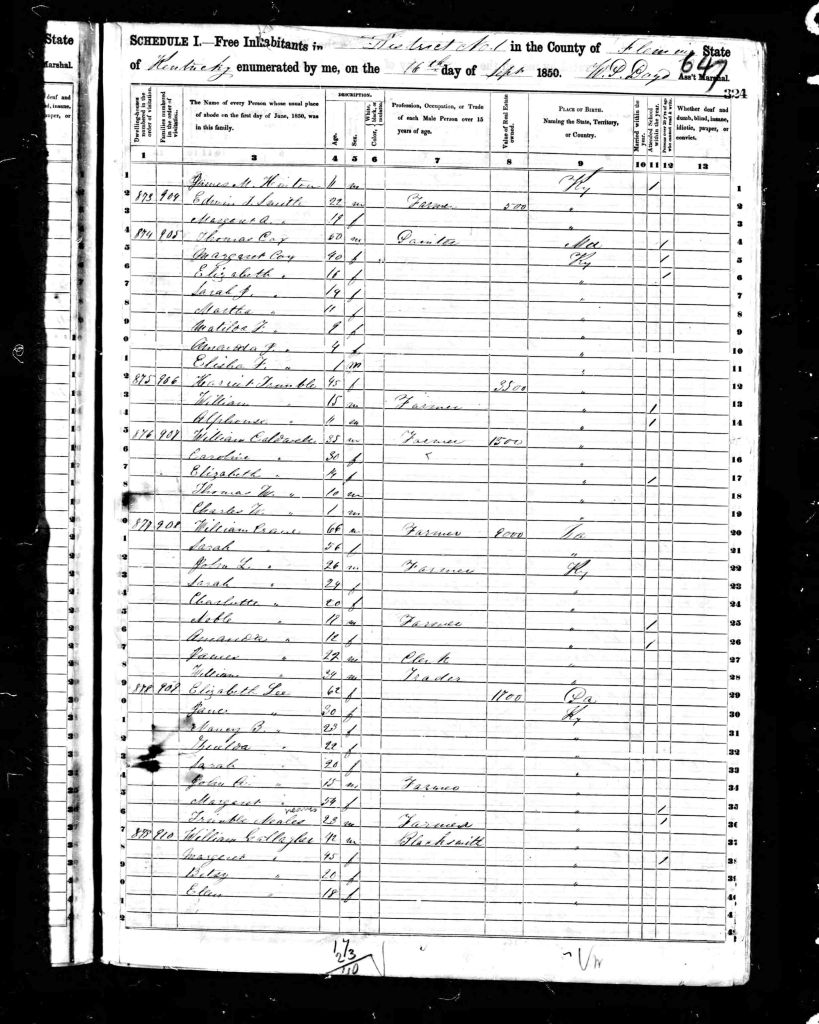 State
Marshal.
SCHEDULE I.—Free Inhabitants in District No. 1 in the County of Fleming State
of Kentucky enumerated by me, on the 16th day of Sept 1850. W. P. Boyd Ass't Marshal.
647
324
Dwelling-houses numbered in the order of visitation.
Families numbered in the order of visitation.
The Name of every Person whose usual place of abode on the first day of June, 1850, was in this family.
DESCRIPTION.
Age.
Sex.
Color, White, black, or mulatto.
Profession, Occupation, or Trade of each Male Person over 15 years of age.
Value of Real Estate owned.
PLACE OF BIRTH. Naming the State, Territory, or Country.
Married within the year.
Attended School within the year.
Persons over 20 y'rs of age who cannot read & write.
Whether deaf and dumb, blind, insane, idiotic, pauper, or convict.
1 2 3 4 5 6 7 8 9 10 11 12 13
1 James M. Hinton 11 m Ky 1 1
2 873 904 Edwin S. Smith 22 m Farmer 500 " 2
3 Margaret A. " 19 f " 3
4 874 905 Thomas Coy 50 m Painter Md 1 4
5 Margaret Coy 40 f Ky 1 5
6 Elizabeth " 16 f " 1 6
7 Sarah J. " 14 f " 7
8 Martha " 11 f " 8
9 Matilda " 9 f " 9
Amanda J. " 4 f " 10
Elisha F. " 1 m " 11
875 906 Harriet Trumble 45 f 3500 " 12
William " 15 m Farmer " 1 13
Alphonse " 11 m " 1 14
876 907 William Caldwell 35 m Farmer 1500 "
Caroline " 30 f " 16
Elizabeth " 14 f " 1 17
Thomas W. " 10 m " 18
Charles W. " 1 m " 19
908 William Crane 66 m Farmer 20
Sarah " 56 f " 21
John L. " 26 m Farmer Ky 22
Sarah " 24 f " 23
Charlotte " 20 f " 24
Noble " m Farmer " 1 25
Amanda " 12 f " 1 26
James " 22 m Clerk " 27
William " 24 m Trader " 28
Elizabeth Lee 62 f Pa 29
Jane " 30 f Ky 30
Nancy B. " 23 f " 31
22 f " 32
Sarah " 20 f " 33
John A. " 15 m Farmer " 34
Margaret " 54 f " 1 35
Trimble Neales 23 m Farmer " 1 36
910 William Gallagher 42 m Blacksmith " 37
Margaret " 45 f " 1 38
Betsy " 20 f " 39
Ellen " 18 f " 40